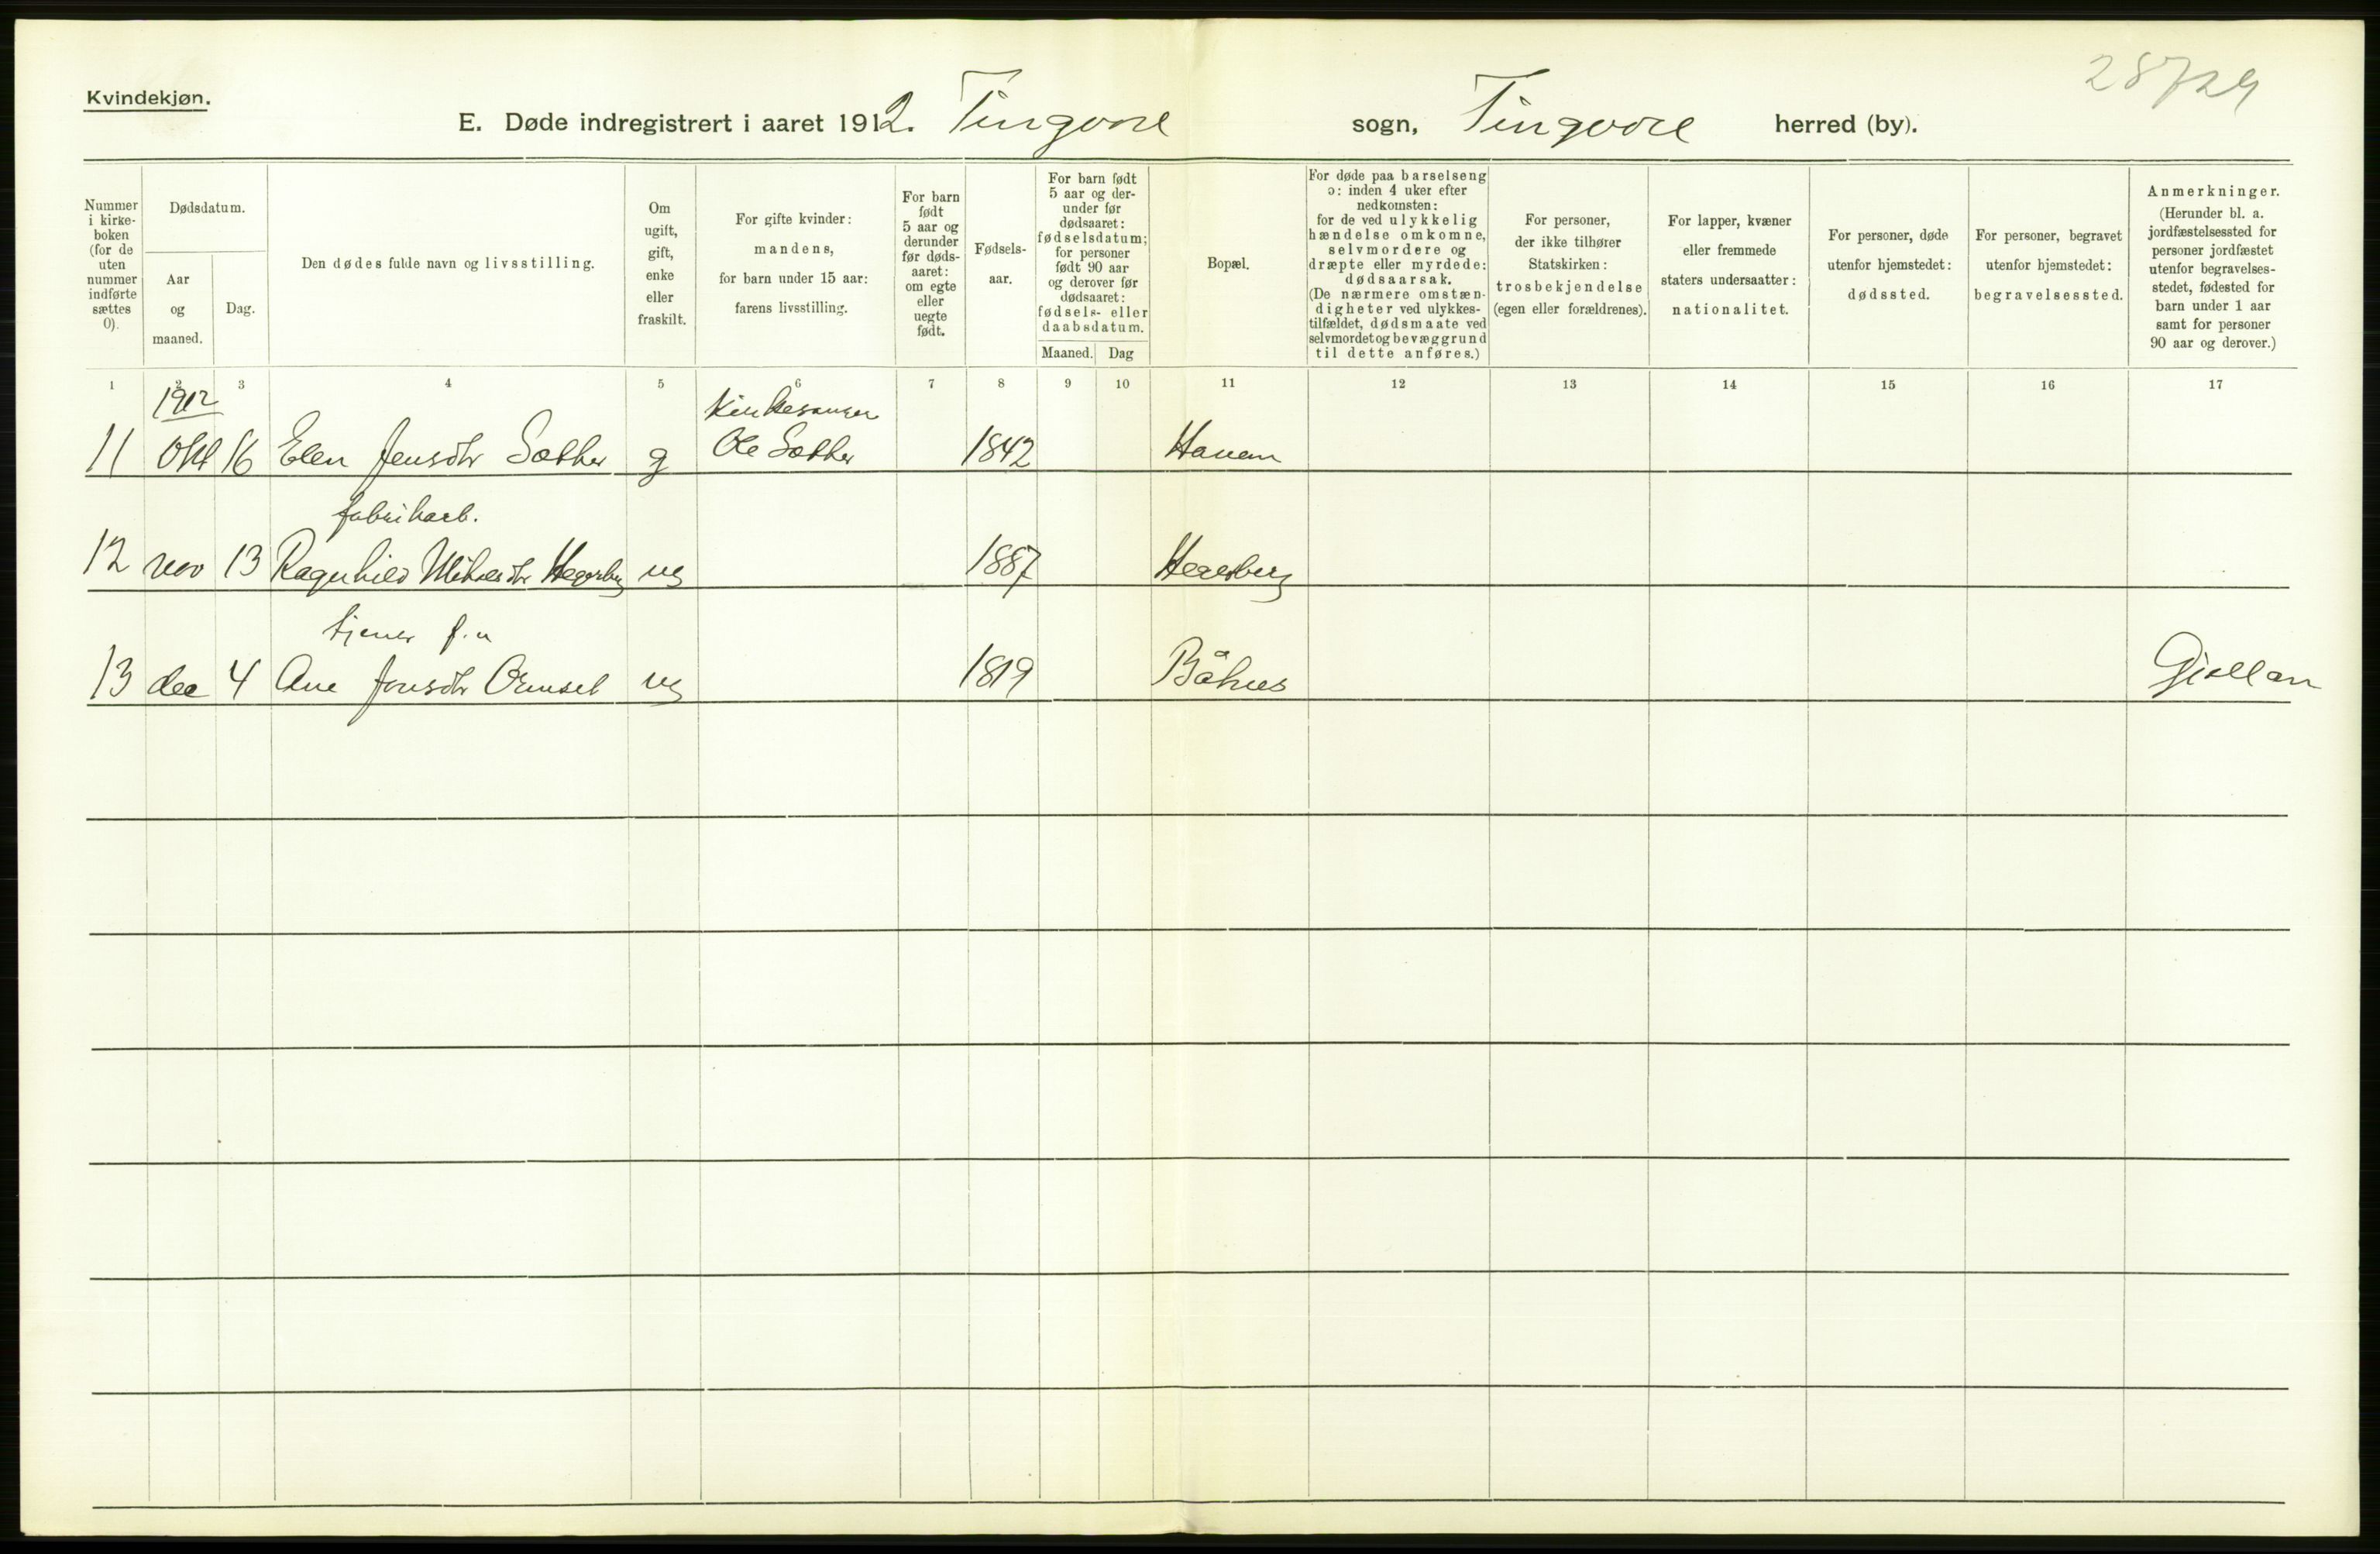 Kvindekjøn.
28729
E. Døde indregistrert i aaret 1912. Tingvoll sogn, Tingvoll herred (by).
Nummer i kirkeboken (for de uten nummer indførte sættes 0).
Dødsdatum.
Aar og maaned.
Dag.
Den dødes fulde navn og livsstilling.
Om ugift, gift, enke eller fraskilt.
For gifte kvinder: mandens, for barn under 15 aar: farens livsstilling.
For barn født 5 aar og derunder før dødsaaret: om egte eller uegte født.
Fødselsaar.
For barn født 5 aar og derunder før dødsaaret: fødselsdatum; for personer født 90 aar og derover før dødsaaret: fødsels- eller daabsdatum.
Maaned. Dag
Bopæl.
For døde paa barselseng ɔ: inden 4 uker efter nedkomsten: for de ved ulykkelig hændelse omkomne, selvmordere og dræpte eller myrdede: dødsaarsak. (De nærmere omstændigheter ved ulykkestilfældet, dødsmaate ved selvmordet og bevæggrund til dette anføres.)
For personer, der ikke tilhører Statskirken: trosbekjendelse (egen eller forældrenes).
For lapper, kvæner eller fremmede staters undersaatter: nationalitet.
For personer, døde utenfor hjemstedet: dødssted.
For personer, begravet utenfor hjemstedet: begravelsessted.
Anmerkninger. (Herunder bl. a. jordfæstelsessted for personer jordfæstet utenfor begravelsesstedet, fødested for barn under 1 aar samt for personer 90 aar og derover.)
1 2 3 4 5 6 7 8 9 10 11 12 13 14 15 16 17
1912 Kirkesanger
11 Okt 16 Elen Jensdtr Sæther g Ole Sæther 1842 Hanem
fabrikarb.
12 nov 13 Ragnhild Mikalsdtr Hegerberg ug 1887 Hegerberg
tjener f.u
13 dec 4 Ane Jonsdtr ug 1819 Båhus Gjøllan